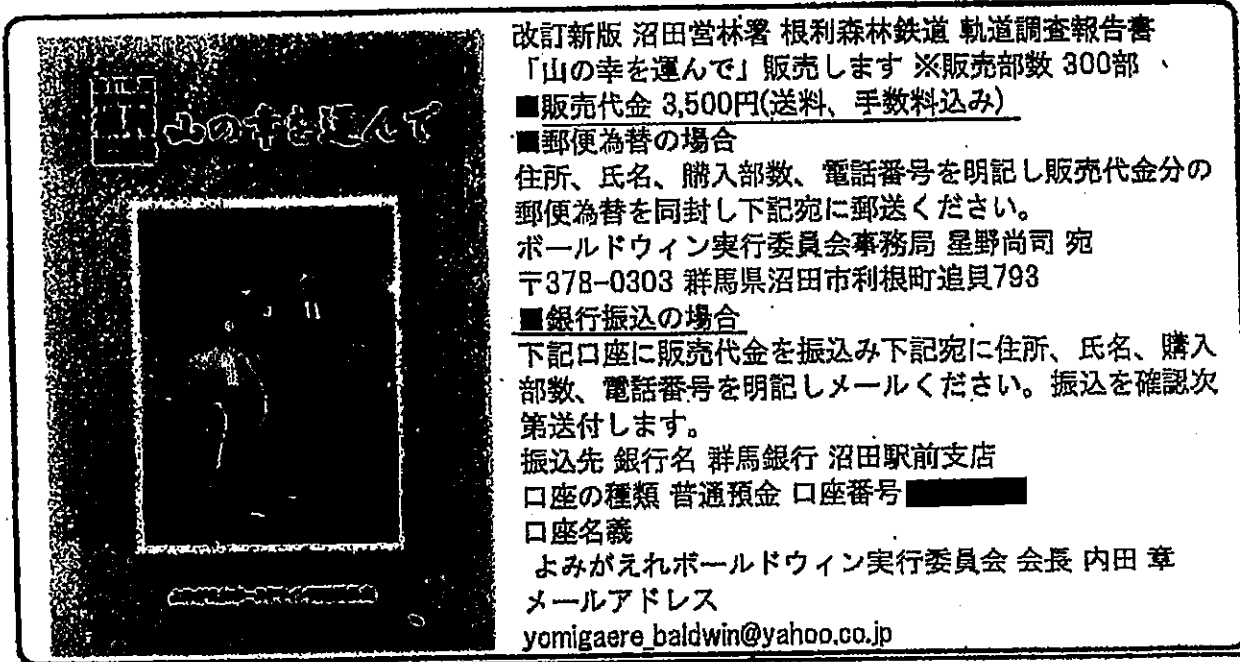 山の幸を運んで
改訂新版 沼田営林署 根利森林鉄道 軌道調査報告書
「山の幸を運んで」販売します ※販売部数 300部
■販売代金 3,500円(送料、手数料込み)
■郵便為替の場合
住所、氏名、購入部数、電話番号を明記し販売代金分の
郵便為替を同封し下記宛に郵送ください。
ボールドウィン実行委員会事務局 星野尚司 宛
〒378-0303 群馬県沼田市利根町追貝793
■銀行振込の場合
下記口座に販売代金を振込み下記宛に住所、氏名、購入
部数、電話番号を明記しメールください。振込を確認次
第送付します。
振込先 銀行名 群馬銀行 沼田駅前支店
口座の種類 普通預金 口座番号
口座名義
よみがえれボールドウィン実行委員会 会長 内田 章
メールアドレス
yomigaere_baldwin@yahoo.co.jp